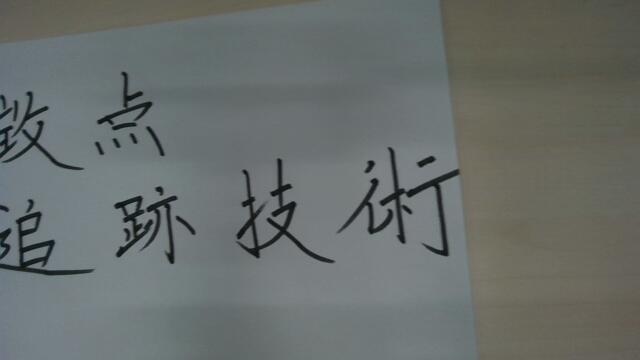 散点
追跡技術